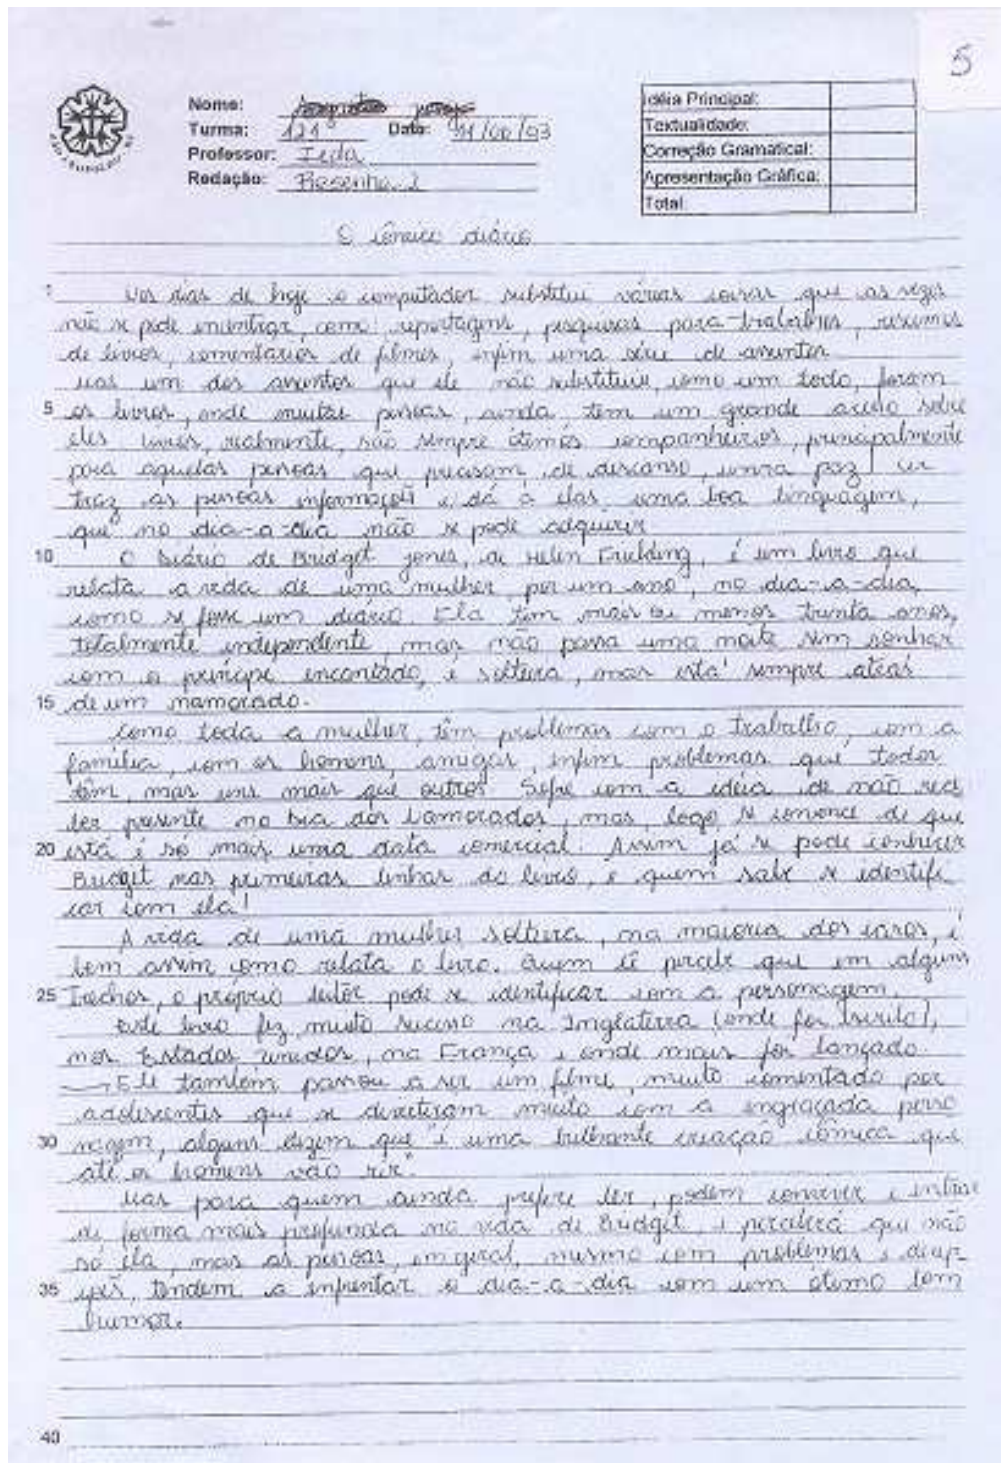 5
Nome:
Turma: 121 Data:
Professor: Ieda
Redação: Resenha 2
Idéia Principal:
Textualidade:
Correção Gramatical:
Apresentação Gráfica:
Total:
O cômico diário
1 Nos dias de hoje o computador substitui várias coisas que as vezes
não se pode encontrar, como: reportagens, pesquisas para trabalhos, resumos
de livros, comentários de filmes, enfim uma série de assuntos.
Mas um dos assuntos que ele não substituiu, como um todo, foram
5 os livros, onde muitas pessoas, ainda, têm um grande acesso sobre
eles livros, realmente, são sempre ótimos companheiros, principalmente
para aquelas pessoas que precisam de descanso, uma paz! Ler
traz as pessoas informações e dá a elas uma boa linguagem,
que no dia-a-dia não se pode adquirir
10 O Diário de Bridget Jones, de Helen Fielding, é um livro que
relata a vida de uma mulher por um ano, no dia-a-dia,
como se fosse um diário. Ela tem mais ou menos trinta anos,
totalmente independente, mas não passa uma noite sem sonhar
com o príncipe encantado, é solteira, mas está sempre atrás
15 de um namorado.
Como toda a mulher, têm problemas com o trabalho, com a
família, com os homens, amigas, enfim problemas que todos
têm, mas uns mais que outros. Sofre com a idéia de não rece
ber presente no Dia dos Namorados, mas, logo se convence de que
20 está é só mais uma data comercial. Assim já se pode conhecer
Bridget nas primeiras linhas do livro, e quem sabe se identifi
car com ela!
A vida de uma mulher solteira, na maioria dos casos, é
bem assim como relata o livro. Quem lê percebe que em alguns
25 trechos, o próprio leitor pode se identificar com a personagem.
Este livro fez muito sucesso na Inglaterra (onde foi escrito),
nos Estados Unidos, na França e onde mais foi lançado.
Ele também passou a ser um filme, muito comentado por
adolescentes que se divertiram muito com a engraçada perso
30 nagem, alguns dizem que "é uma brilhante criação cômica que
até os homens vão rir".
Mas para quem ainda prefere ler, podem conviver e entrar
de forma mais profunda na vida de Bridget, e perceberá que não
só ela, mas as pessoas, em geral, mesmo com problemas e
35 tendem a enfrentar o dia-a-dia com um ótimo bom
humor.
40